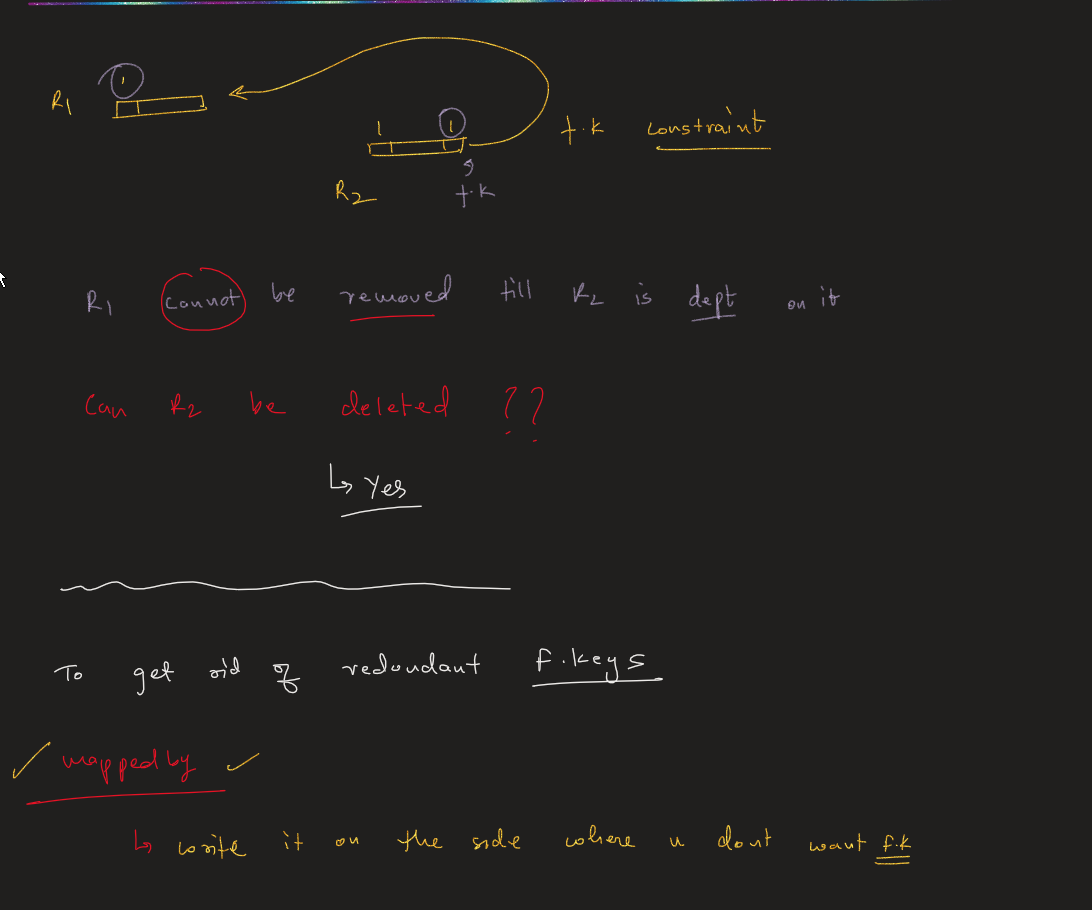 1
R1
1 1
f.k constraint
R2
f.k
R1 cannot be removed till R2 is dept on it
Can R2 be deleted ??
↳ Yes
To get rid of redundant F.keys
✓ mappedby ✓
↳ write it on the side where u dont want f.k